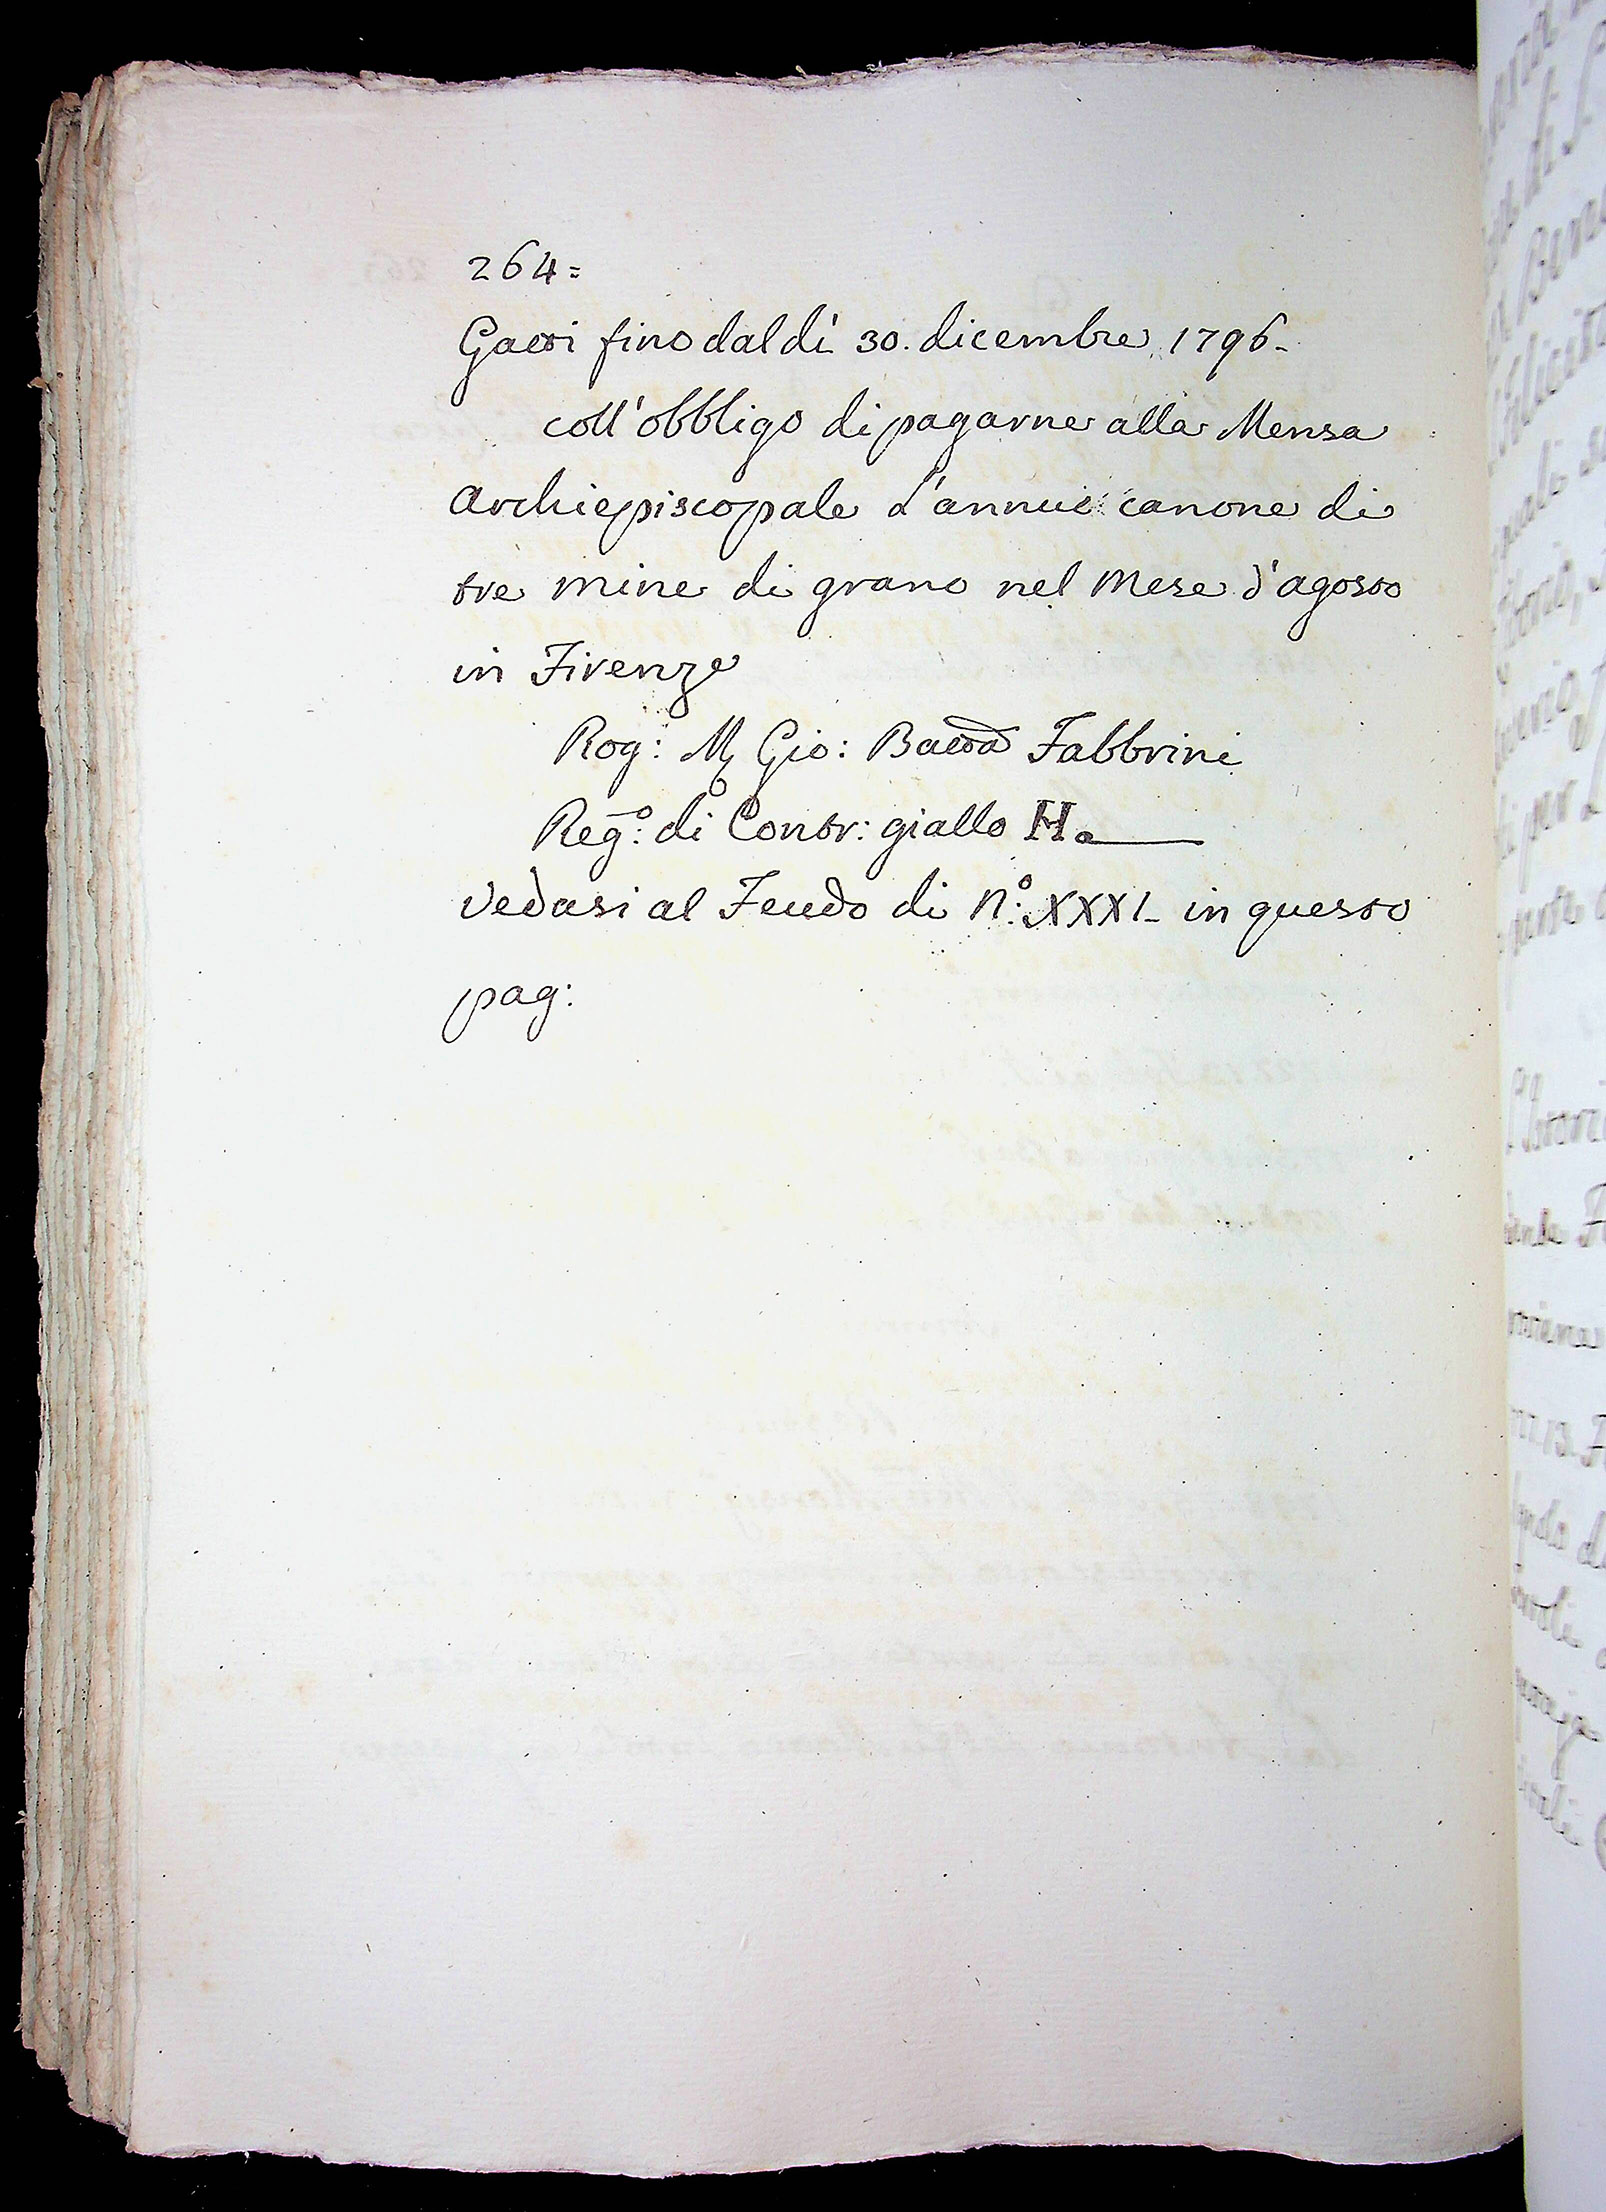 264=
Gatti fino dal dì 30. dicembre 1796-
coll'obbligo di pagarne alla Mensa
Archiepiscopale l'annuo canone di
tre mine di grano nel Mese d'agosto
in Firenze
Rog: M Gio: Batta Fabbrini
Reg.º: di Contr: giallo H.
Vedasi al Feudo di N.º: XXXI- in questo
pag: